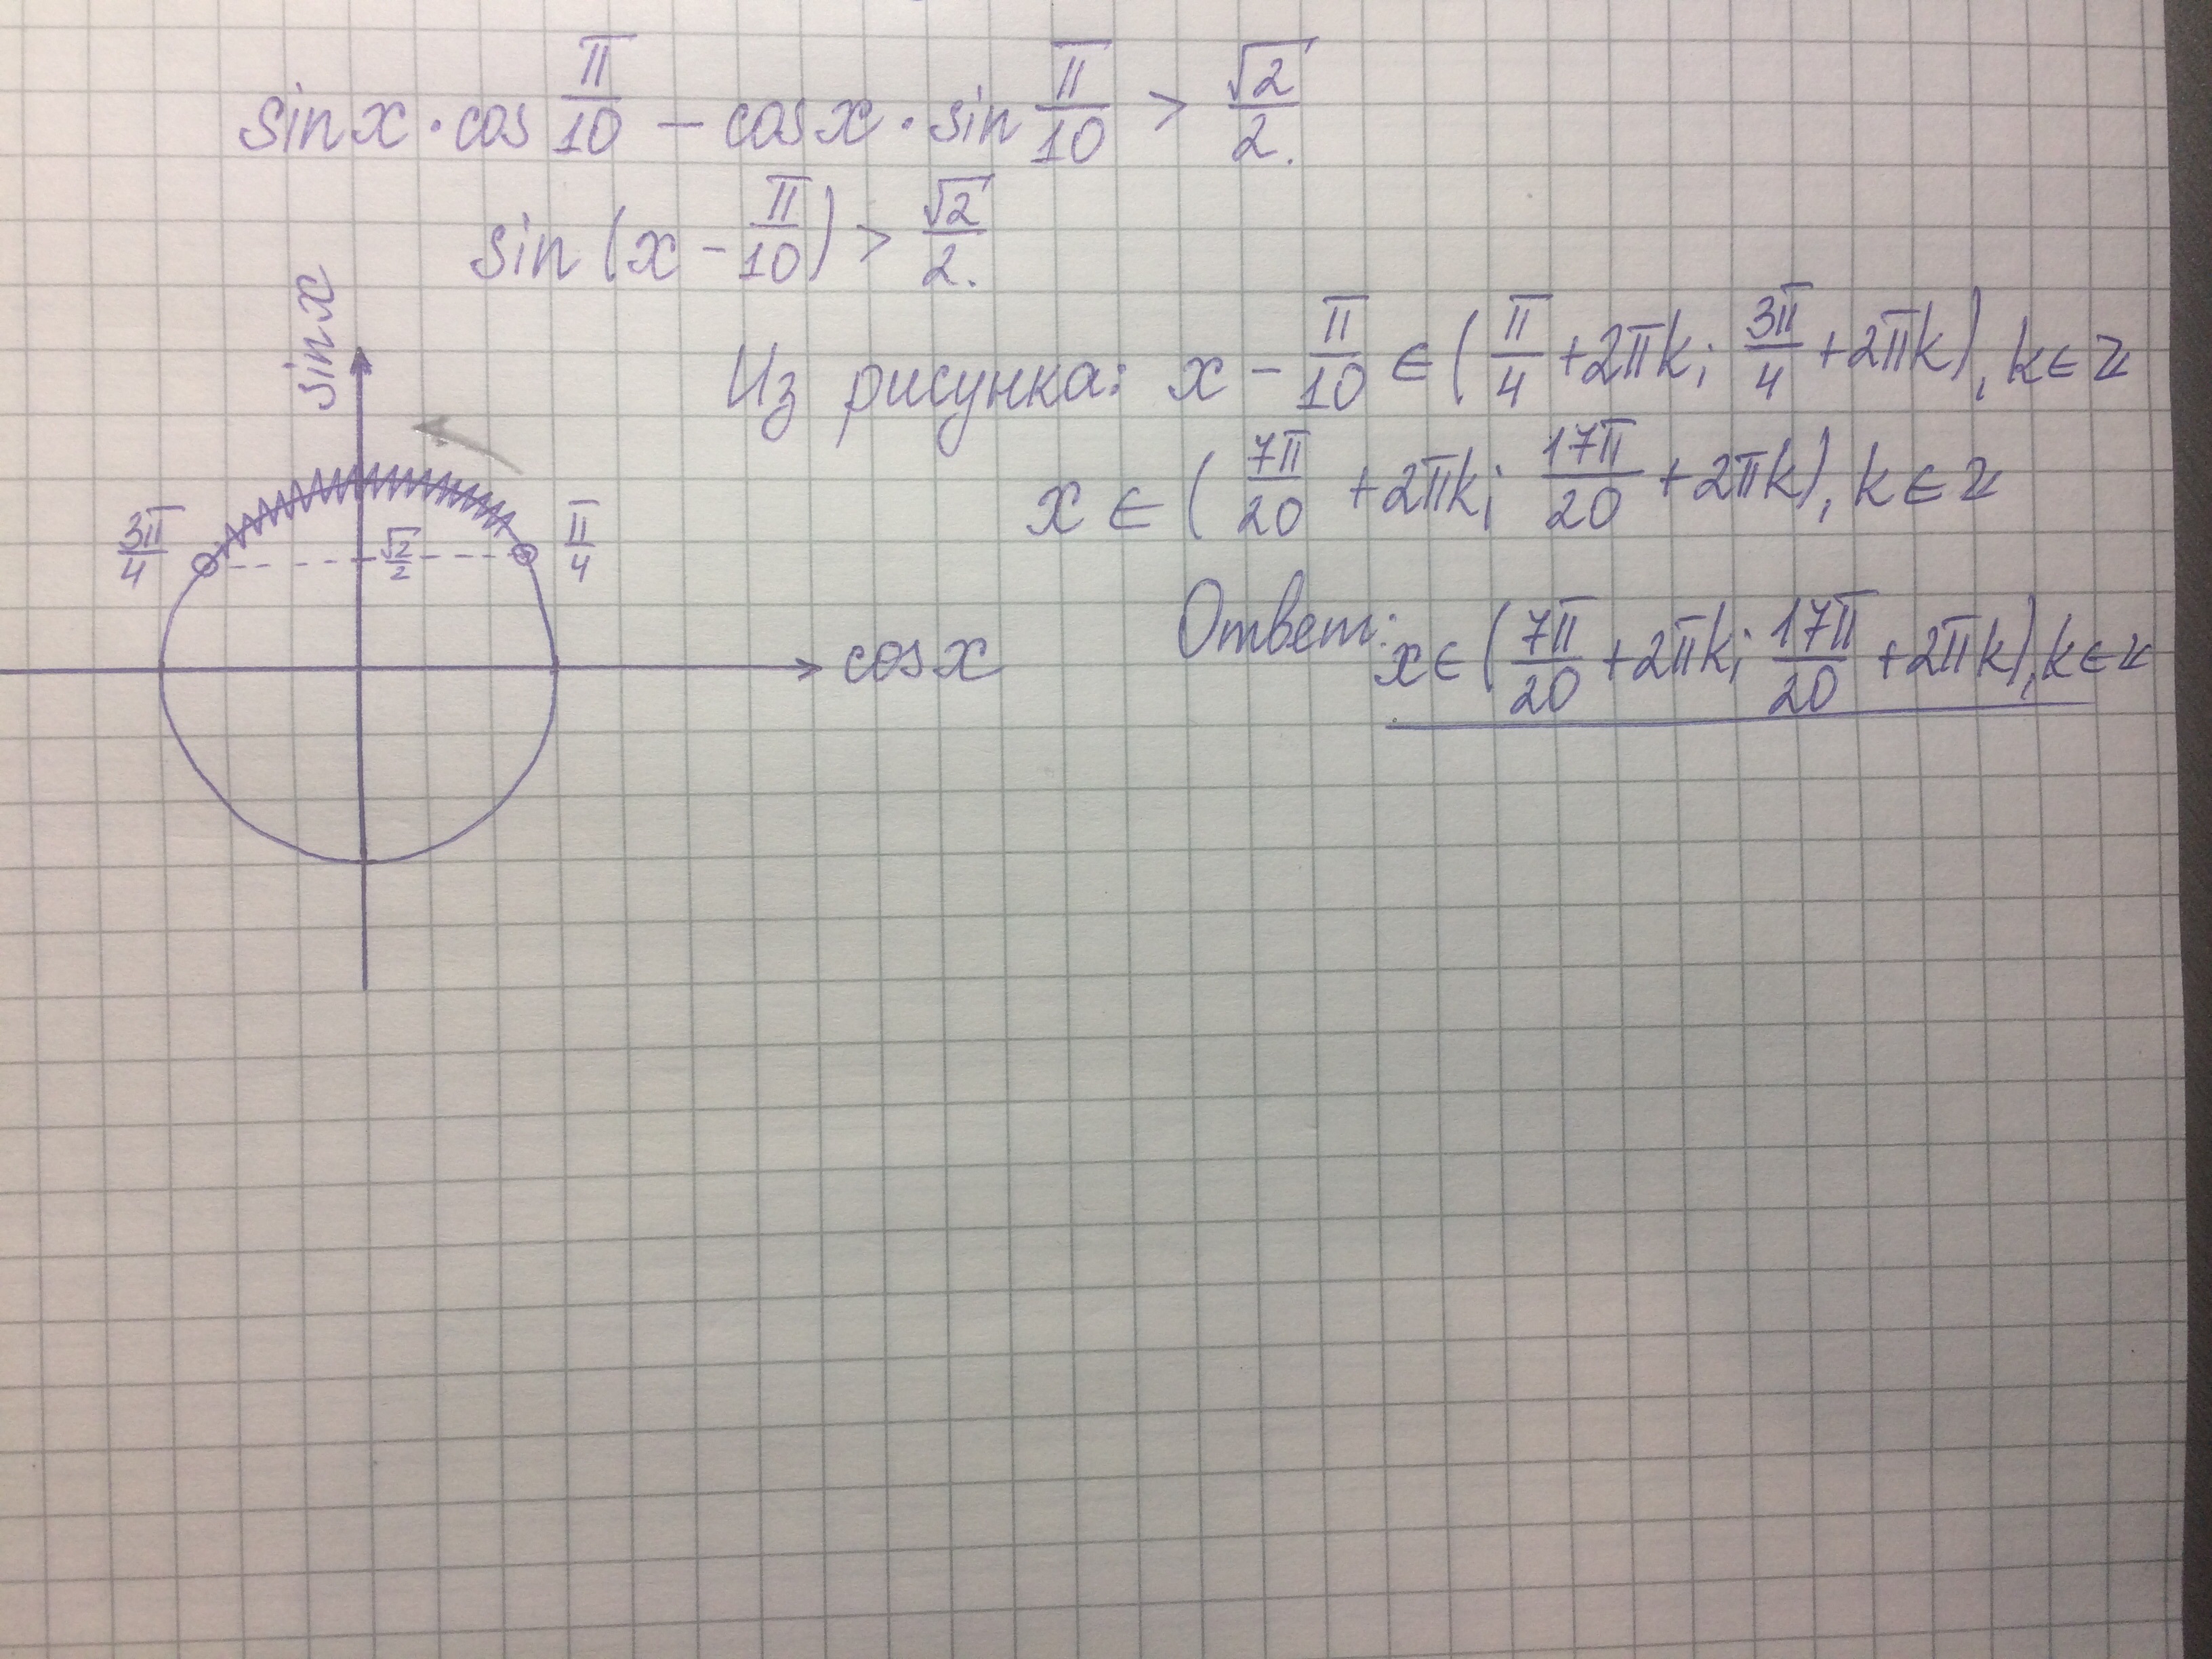 sin x · cos π/10 − cos x · sin π/10 > √2/2.
sin (x − π/10) > √2/2.
sin x
Из рисунка: x − π/10 ∈ (π/4 + 2πk; 3π/4 + 2πk), k ∈ Z
x ∈ (7π/20 + 2πk; 17π/20 + 2πk), k ∈ Z
3π/4 √2/2 π/4
cos x
Ответ: x ∈ (7π/20 + 2πk; 17π/20 + 2πk), k ∈ Z